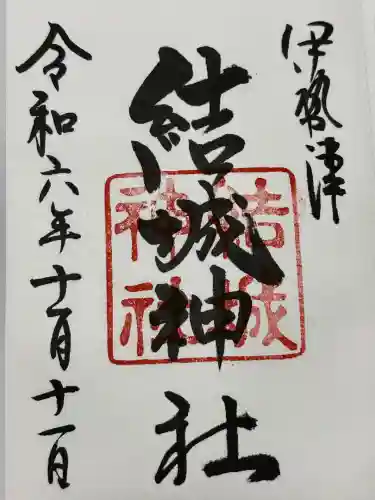 伊勢津
結城神社
結城神社
令和六年十一月十一日